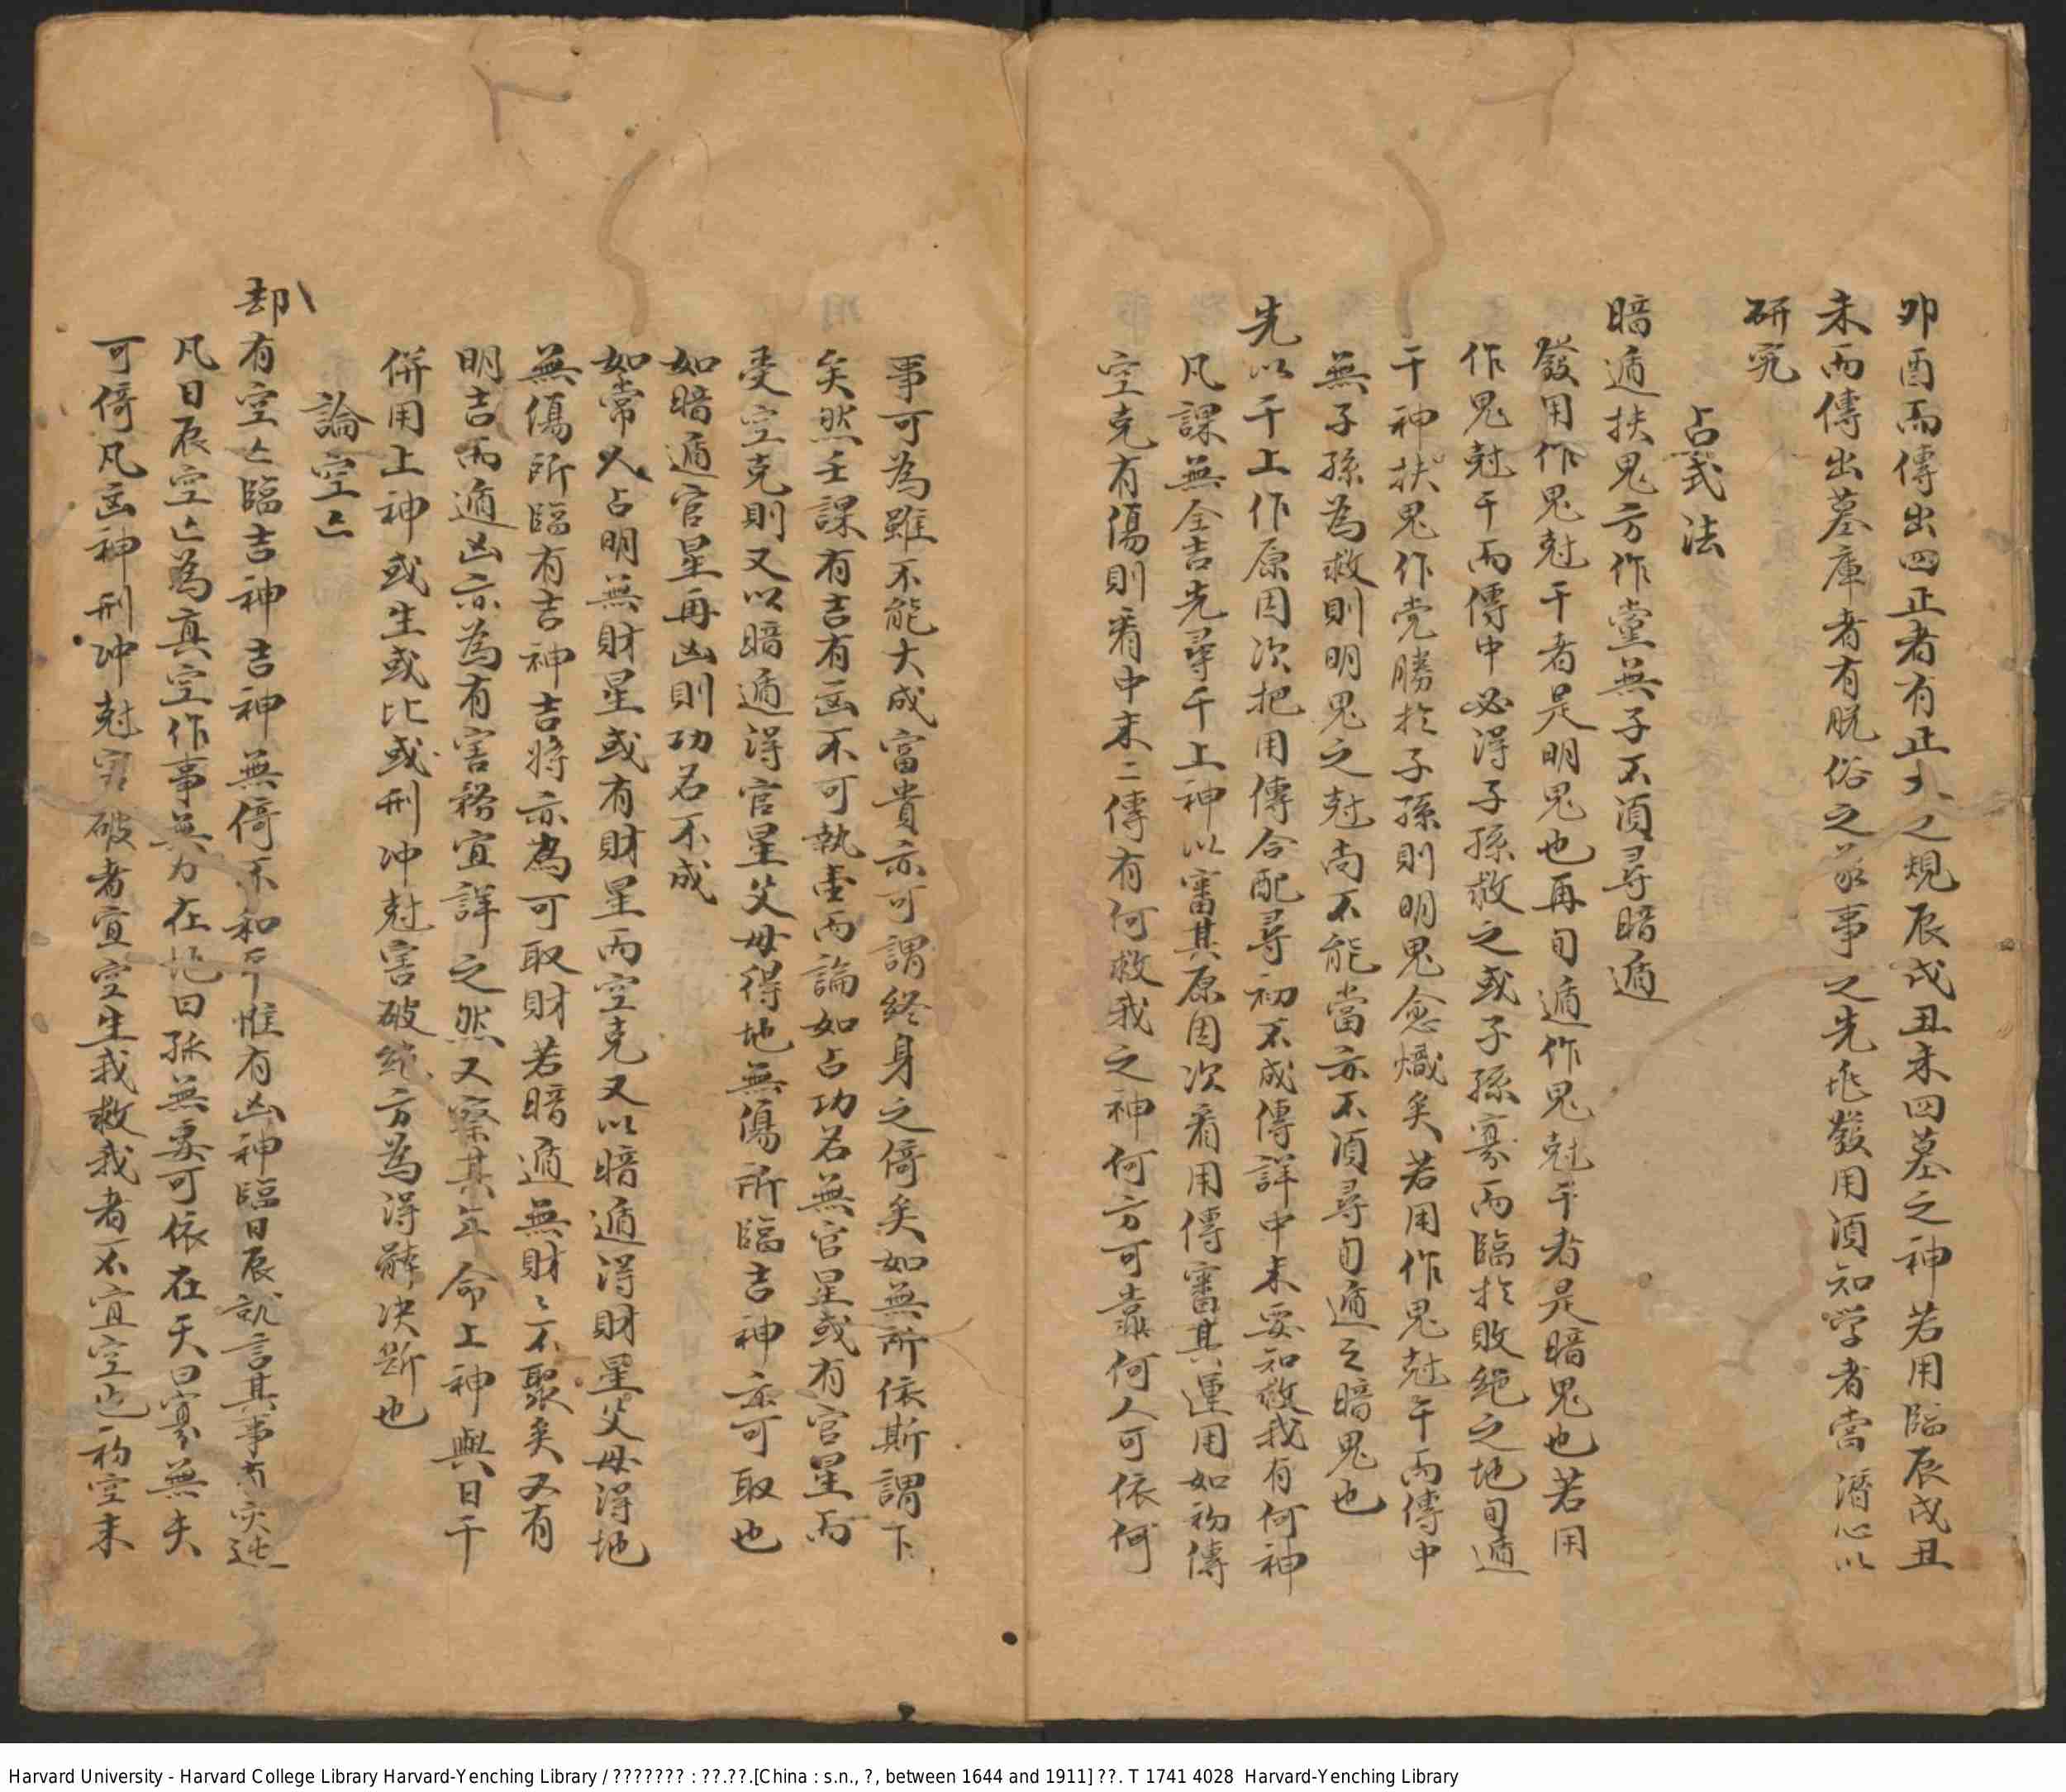 卯酉而傳出四正者有正大之規辰戌丑未四墓之神若用臨辰戌丑
未而傳出墓庫者有脱俗之象事之先兆發用須知学者當潛心以
研究
占式法
暗遁扶鬼方作党無子不須尋暗遁
發用作鬼尅干者是明鬼也再旬遁作鬼尅干者是暗鬼也若用
作鬼尅干而傳中必得子孫救之或子孫寡而臨於敗絕之地旬遁
干神扶鬼作党勝於子孫則明鬼愈熾矣若用作鬼尅干而傳中
無子孫為救則明鬼之尅尚不能當亦不須尋旬遁之暗鬼也
先以干上作原因次把用傳合配尋初不成傳詳中末要知救我有何神
凡課無全吉先尋干上神以審其原因次看用傳審其運用如初傳
空克有傷則看中末二傳有何救我之神何方可靠何人可依何
事可為雖不能大成富貴亦可謂終身之倚矣如無所依斯謂下
矣然壬課有吉有凶不可執壹而論如占功名無官星或有官星而
受空克則又以暗遁得官星父母得地無傷所臨吉神亦可取也
如暗遁官星再凶則功名不成
如常人占明無財星或有財星而空克又以暗遁得財星父母得地
無傷所臨有吉神吉将亦為可取財若暗遁無財〻不聚矣又有
明吉而遁凶亦為有害務宜詳之然又察其年命上神與日干
併用上神或生或比或刑冲尅害破絕方為得觧决断也
論空亡
却有空亡臨吉神吉神無倚不和平惟有凶神臨日辰就言其事有灾迍
凡日辰空亡為真空作事無力在地曰孤無妻可依在天曰寡無夫
可倚凡凶神刑冲尅害破者宜空生我救我者不宜空也初空末